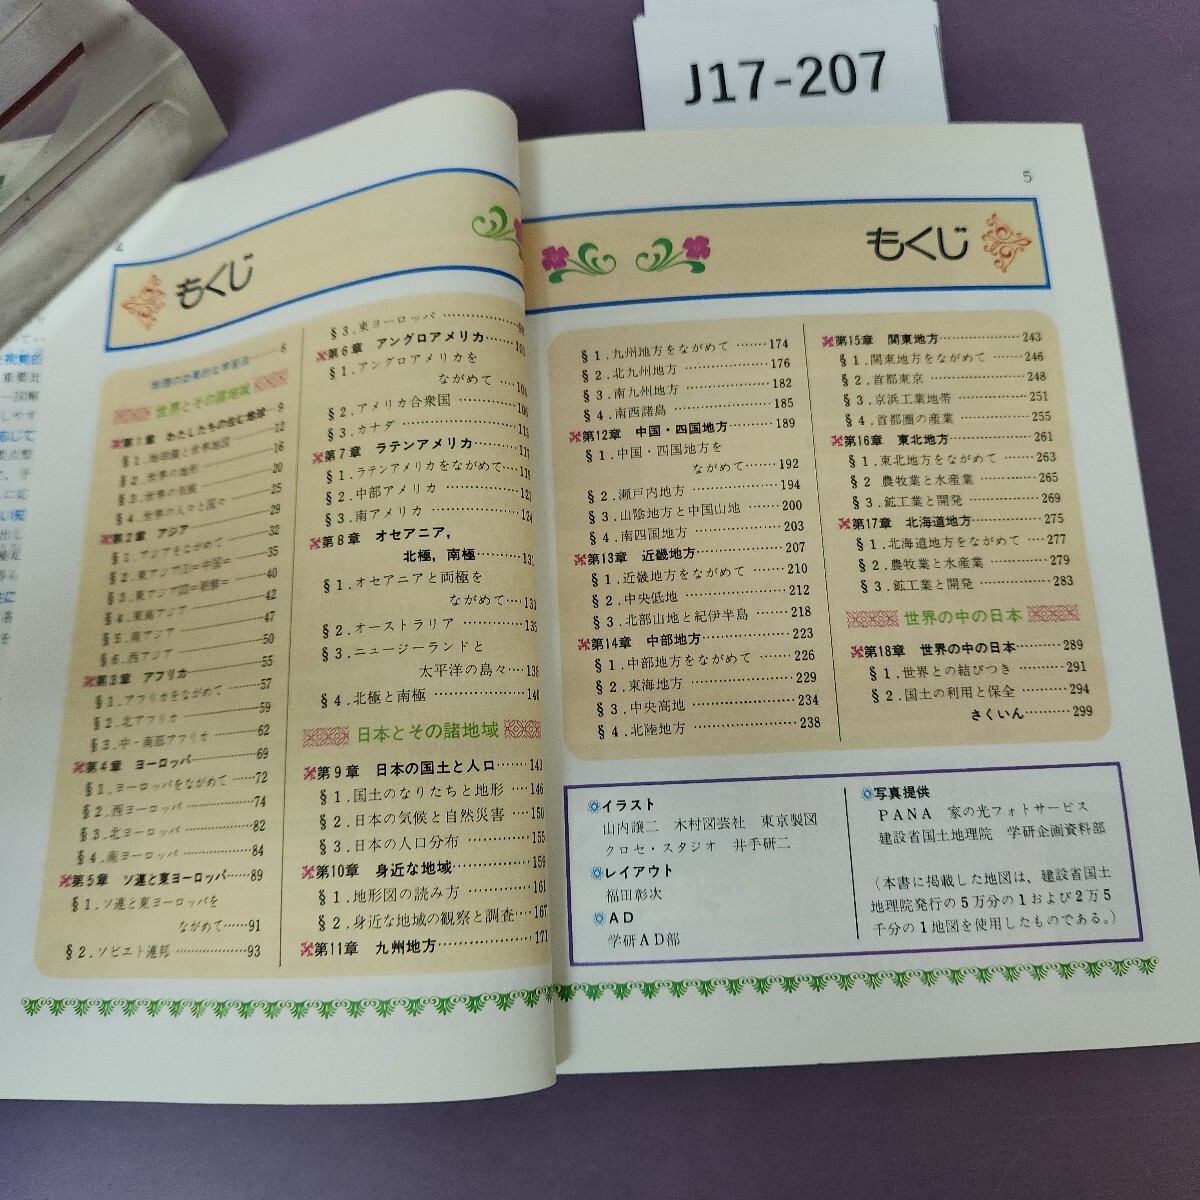 J17-207
4
もくじ
地理の効果的な学習法………6
世界とその諸地域
第1章 わたしたちの住む地球…9
§1.地球儀と世界地図………12
§2.世界の地形………16
§3.世界の気候………20
§4.世界の人々と国々………25
第2章 アジア………29
§1.アジアをながめて………32
§2.東アジアⅠ＝中国＝………35
§3.東アジアⅡ＝朝鮮＝………40
§4.東南アジア………42
§5.南アジア………47
§6.西アジア………50
第3章 アフリカ………55
§1.アフリカをながめて………57
§2.北アフリカ………59
§3.中・南部アフリカ………62
第4章 ヨーロッパ………69
§1.ヨーロッパをながめて……72
§2.西ヨーロッパ………74
§3.北ヨーロッパ………82
§4.南ヨーロッパ………84
第5章 ソ連と東ヨーロッパ……89
§1.ソ連と東ヨーロッパを
ながめて……91
§2.ソビエト連邦………93
§3.東ヨーロッパ………98
第6章 アングロアメリカ………101
§1.アングロアメリカを
ながめて……104
§2.アメリカ合衆国………106
§3.カナダ………113
第7章 ラテンアメリカ………117
§1.ラテンアメリカをながめて…119
§2.中部アメリカ………121
§3.南アメリカ………124
第8章 オセアニア，
北極，南極………131
§1.オセアニアと両極を
ながめて……133
§2.オーストラリア………135
§3.ニュージーランドと
太平洋の島々…138
§4.北極と南極………140
日本とその諸地域
第9章 日本の国土と人口……143
§1.国土のなりたちと地形…146
§2.日本の気候と自然災害…150
§3.日本の人口分布………155
第10章 身近な地域………159
§1.地形図の読み方………161
§2.身近な地域の観察と調査…167
第11章 九州地方………171
5
もくじ
§1.九州地方をながめて……174
§2.北九州地方………176
§3.南九州地方………182
§4.南西諸島………185
第12章 中国・四国地方………189
§1.中国・四国地方を
ながめて……192
§2.瀬戸内地方………194
§3.山陰地方と中国山地……200
§4.南四国地方………203
第13章 近畿地方………207
§1.近畿地方をながめて……210
§2.中央低地………212
§3.北部山地と紀伊半島……218
第14章 中部地方………223
§1.中部地方をながめて……226
§2.東海地方………229
§3.中央高地………234
§4.北陸地方………238
第15章 関東地方………243
§1.関東地方をながめて……246
§2.首都東京………248
§3.京浜工業地帯………251
§4.首都圏の産業………255
第16章 東北地方………261
§1.東北地方をながめて……263
§2 農牧業と水産業………265
§3.鉱工業と開発………269
第17章 北海道地方………275
§1.北海道地方をながめて…277
§2.農牧業と水産業………279
§3.鉱工業と開発………283
世界の中の日本
第18章 世界の中の日本………289
§1.世界との結びつき………291
§2.国土の利用と保全………294
さくいん………299
イラスト
山内譲二 木村図芸社 東京製図
クロセ・スタジオ 井手研二
レイアウト
福田彰次
AD
学研AD部
写真提供
PANA 家の光フォトサービス
建設省国土地理院 学研企画資料部
（本書に掲載した地図は、建設省国土
地理院発行の5万分の1および2万5
千分の1地図を使用したものである。）